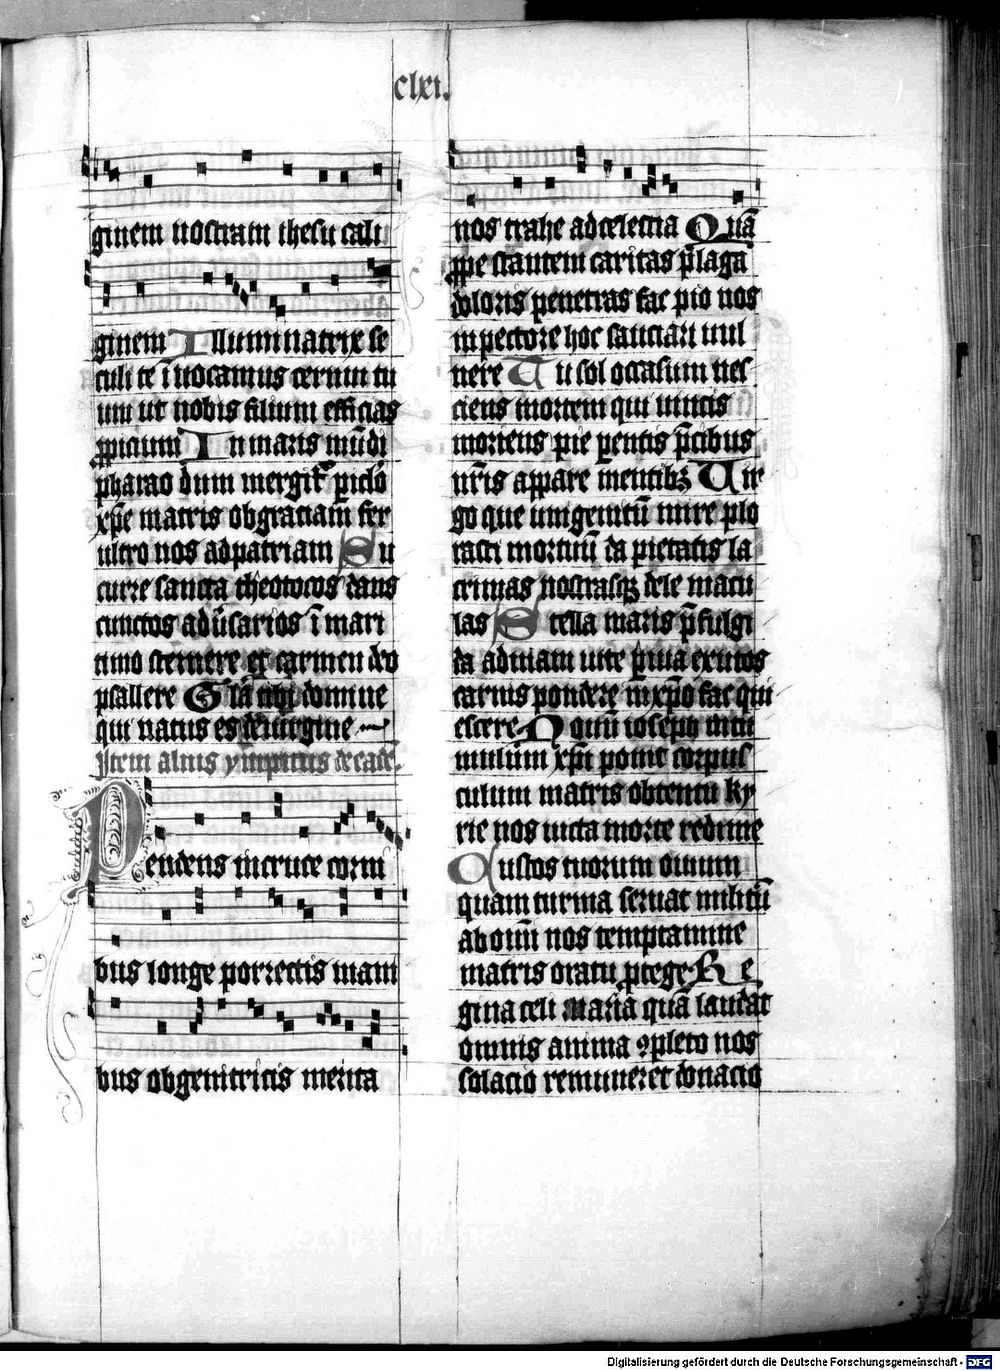 clxi.
ginem nostram ihesu cali
ginem Illuminatrix se
culi te īuocamus cernui tu
um ut nobis filium efficias
ꝓpicium In maris mūdi
pharao dum mergit᷑ piclo
xp̄e matris ob gratiam fer
ultro nos ad patriam Su
curre sancta theotocos dans
cunctos adūsarios ī mari
timo sternere et carmen deo
psallere Gl̄a tibi domine
qui natus es de uirgine
Item alius ympnus de ead̄.
Pendens in cruce corni
bus longe porrectis mani
bus ob genitricis merita
nos trahe ad celestia Quā
ꝓpe stantem caritas p̄ plaga
doloris penetras fac pio nos
in pectore hoc sauciari uul
nere Tu sol occasum nes
ciens mortem qui uincis
moriens pie gentis p̄cibus
nr̄is appare mentibꝫ Vir
go que unigenitū mire plo
rasti mortuū da pietatis la
crimas nostrasqꝫ dele macu
las Stella maris p̄fulgi
da ad uiam uite ꝑuia exutos
carnis pondere in xp̄o fac qui
escere O quū ioseph in tu
mulum xp̄i ponit corpus
culum matris obtentu ky
rie nos iuxta morte redime
Custos tuorum ouium
quam turma seruat militū
ab om̄i nos temptamine
matris oratu ꝓtege Re
gina celi Maria quā laudat
omnis anima ꝯpleto nos
solacio remuneret donacio
Digitalisierung gefördert durch die Deutsche Forschungsgemeinschaft - DFG